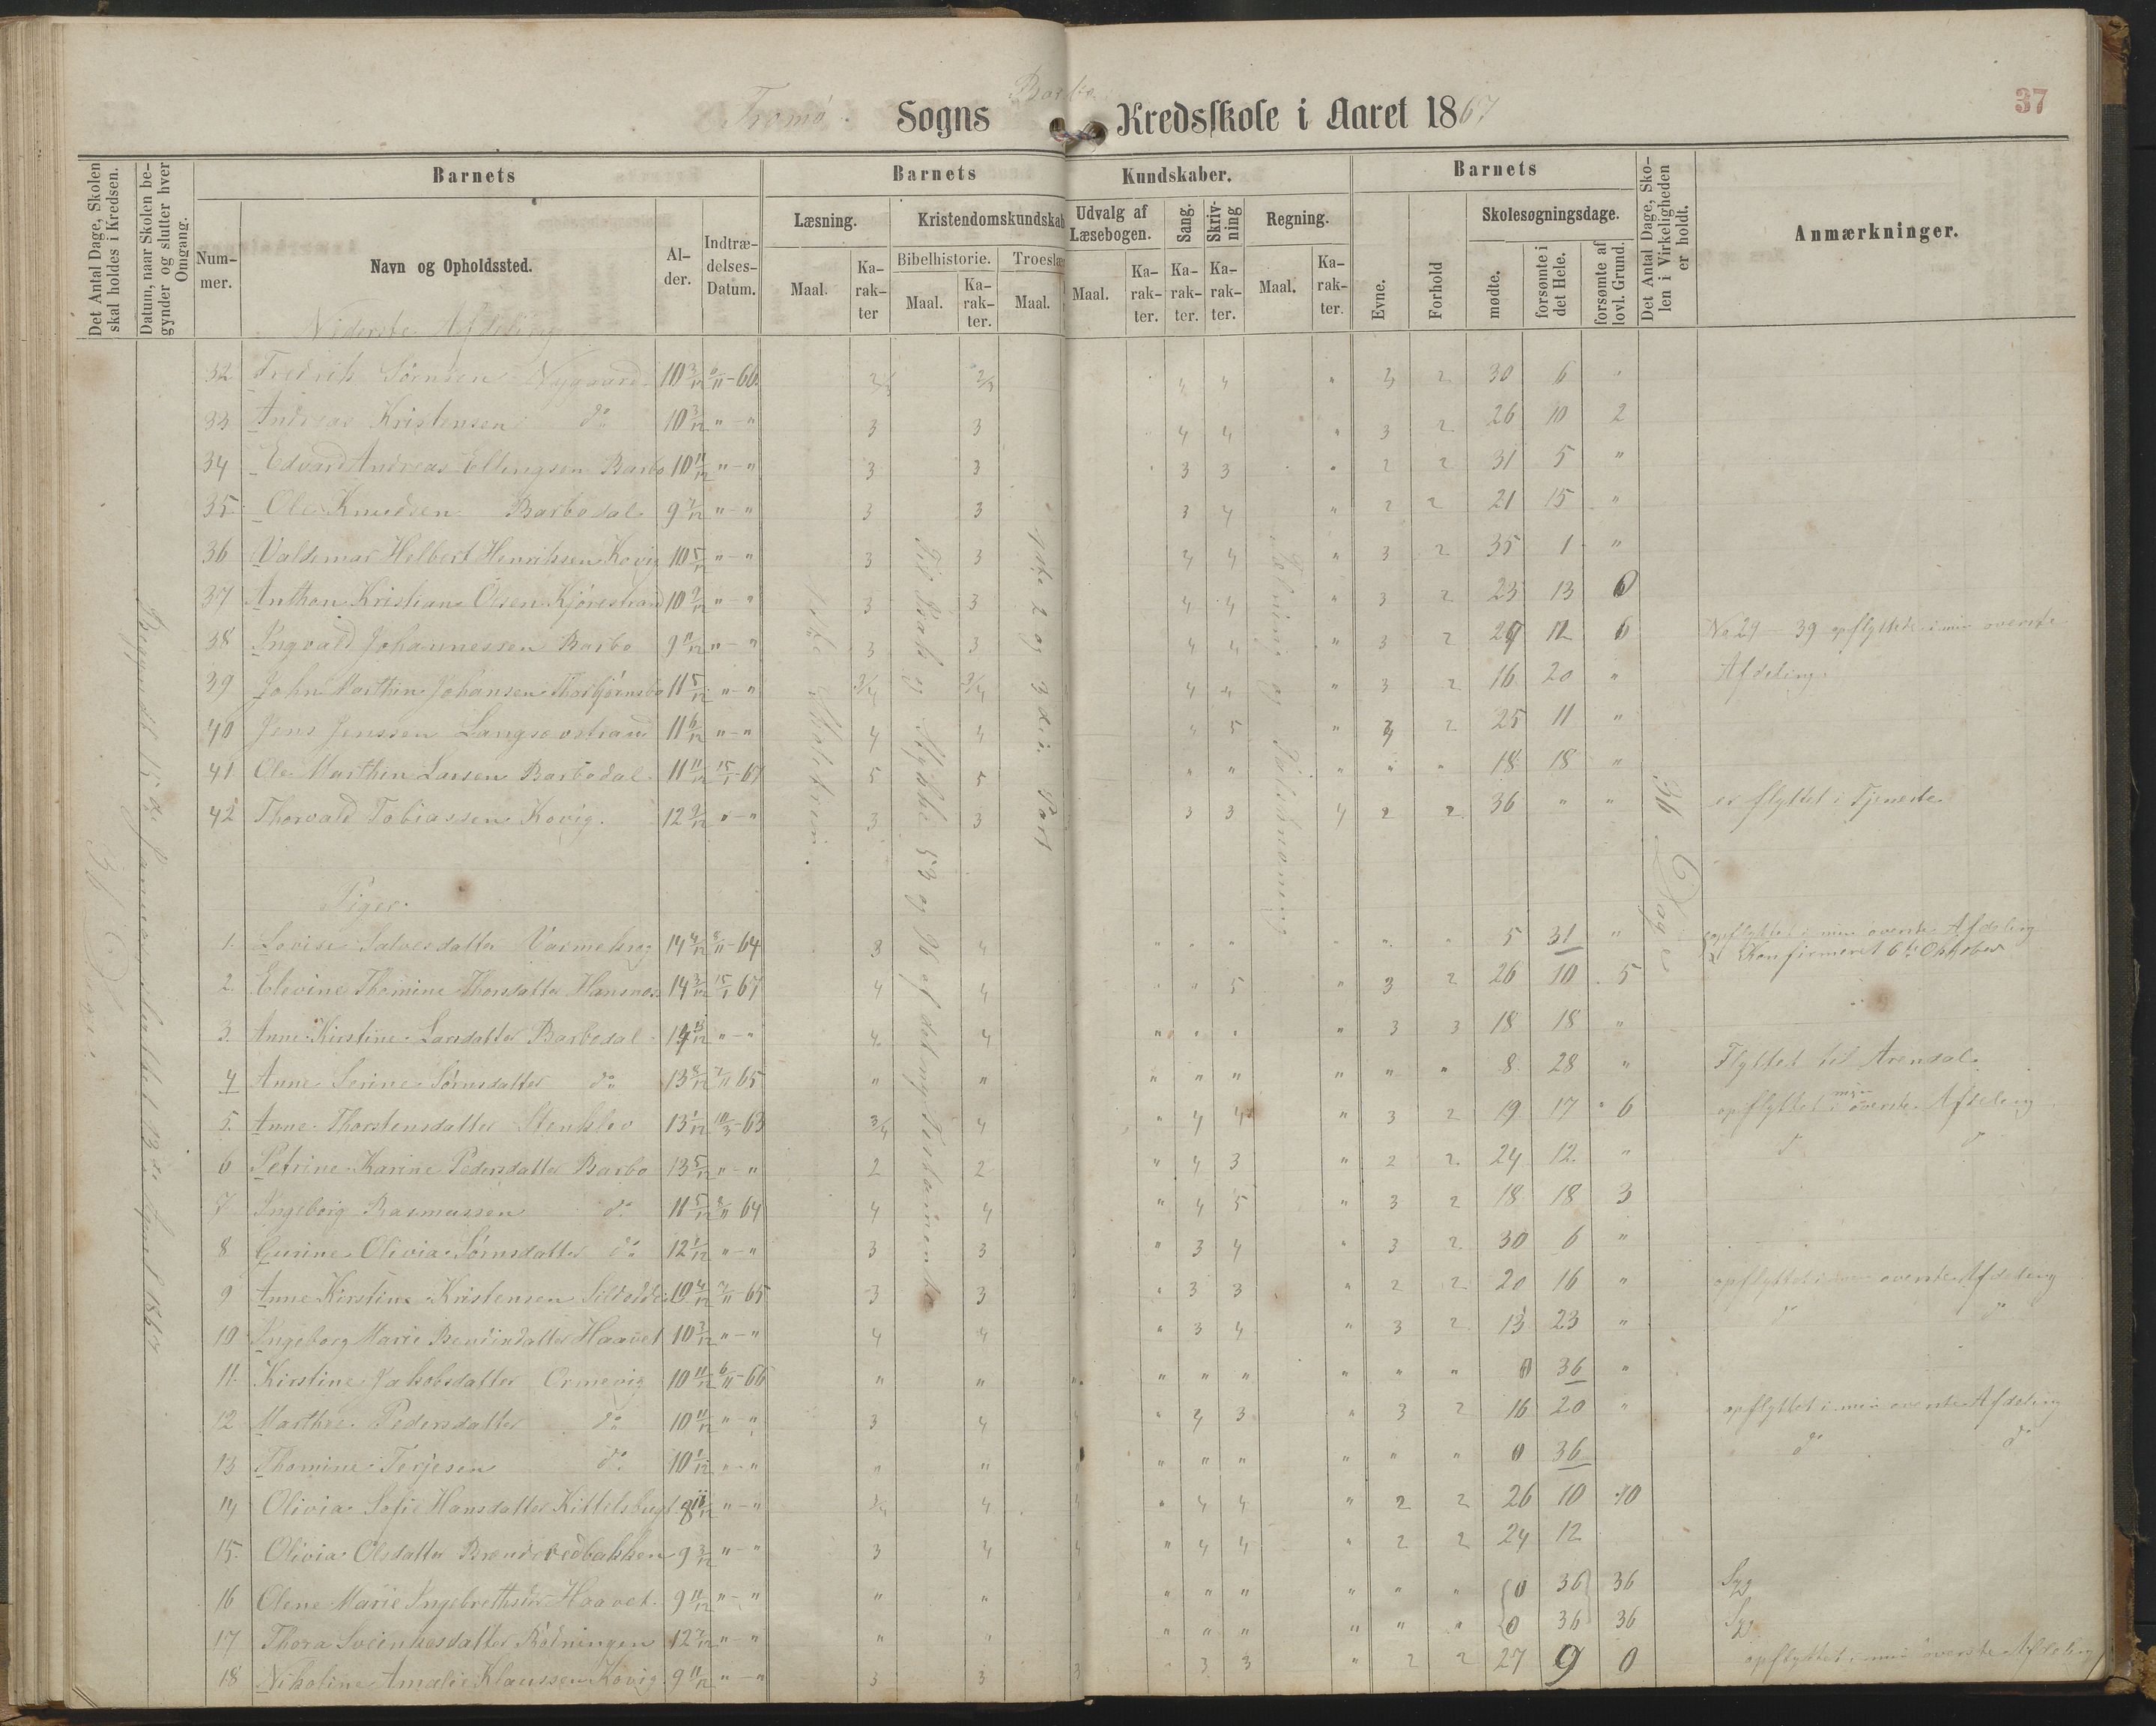 37
Barbo
Tromø Sogns Kredsskole i Aaret 1867
Det Antal Dage, Skolen skal holdes i Kredsen.
Datum, naar Skolen begynder og slutter hver Omgang.
Barnets
Nummer.
Navn og Opholdssted.
Alder.
Indtrædelses-Datum.
Barnets Kundskaber.
Læsning.
Maal.
Karakter
Kristendomskundskab
Bibelhistorie.
Maal.
Karakter.
Troeslær
Maal.
Udvalg af Læsebogen.
Maal.
Karakter.
Sang.
Karakter.
Skrivning
Karakter.
Regning.
Maal.
Karakter.
Barnets
Evne.
Forhold
Skolesøgningsdage.
mødte.
forsømte i det Hele.
forsømte af lovl. Grund.
Det Antal Dage, Skolen i Virkeligheden er holdt.
Anmærkninger.
Niderste Afdeling
32 Fredrik Sørensen Nygaard 10 3/12 6/11-66 2/3 2/3 4 4 " 3 2 30 6
33 Andreas Kristensen do 10 3/12 " - " 3 3 4 4 " 3 2 26 10 2
34 Edvard Andreas Ellingsen Barbo 10 11/12 " - " 3 3 3 3 " 2 2 31 5 "
35 Ole Knudsen Barbodal 9 7/12 " - " 3 3 3 4 " 2 2 21 15 "
36 Valdemar Helbert Henriksen Kovig 10 5/12 " - " 3 3 4 4 " 3 2 35 1 "
37 Anthon Kristian Olsen Kjørestrand 10 9/12 " - " 3 3 4 4 " 3 2 23 13 6
38 Ingvald Johannessen Barbo 9 11/12 " - " 3 3 4 4 " 3 2 24 12 6 No 29 - 39 opflyttede i min øverste
39 John Marthin Johansen Thorbjørnsbo 11 5/12 " - " 3/4 3/4 4 4 " 3 2 16 20 " Afdeling.
40 Jens Jenssen Langsevstrand 11 6/12 " - " 4 4 " 5 " 3 2 25 11 "
41 Ole Marthin Larsen Barbodal 11 11/12 15/1-67 5 5 " " " " " 18 18 "
42 Thorvald Tobiassen Kovig. 12 9/12 " - " 3 3 3 3 4 2 2 36 " " er flyttet i Tjeneste
Piger.
1. Lovise Salvesdatter 14 4/12 8/11-64 3 4 " " " " " " 5 31 " opflyttet i min øverste Afdeling
Konfirmeret 6te Oktober
2 Elevine Thomine Thorsdatter Hansnæs 14 3/12 15/1 67 4 4 " " 5 " 3 2 26 10 5
3. Anne Kirstine Larsdatter Barbodal 14 " - " 4 4 " " " " 3 3 18 18 "
4 Anne Serine Sørnsdatter do 13 8/12 7/11 65 " " " " " " " " 8 28 " Flyttet til Arendal.
5. Anne Thorstensdatter Stenklev 13 1/12 10/3-63 3/4 4 " 4 4 " 3 2 19 17 6 opflyttet i min øverste Afdeling
6 Petrine Karine Pedersdatter Barbo 13 5/12 " - " 2 2 " 4 3 " 2 2 24 12 " do do
7 Ingeborg Rasmussen do 11 5/12 8/11 64 4 4 " 4 5 " 3 2 18 18 3
8 Gurine Olivia Sørnsdatter do 12 1/12 " - " 3 3 3 " 3 4 " 3 2 30 6 "
9 Anne Kirstine Kristensen 10 4/12 7/11-65 3 3 3 " 3 3 " 2 2 20 16 " opflyttet i min øverste Afdeling
10 Ingeborg Marie Haavet 10 3/12 " - " 4 4 " 3 4 " 3 2 13 23 " do do
11. Kirstine Jakobsdatter Ormevig 10 11/12 6/11-66 " " " " " " " " " 0 36 "
12 Marthe Pedersdatter do 10 11/12 " - " 3 4 4 " 4 3 " 3 2 16 20 " opflyttet i min øverste Afdeling
13 Thomine Terjesen do 10 1/12 " - " " " " " " " " " 0 36 do do
14 Olivia Sofie Hansdatter Kittelsbugt 8 11/12 " - " 3/4 4 4 " 4 4 " 2 2 26 10 10
15. Olivia Olsdatter Brændevedbakken 9 3/12 " - " 3 4 4 " 4 4 " 2 2 24 12
16 Olene Marie Ingebrethsdtr Haavet 9 11/12 " - " " " " " " " " " 0 36 36 Syg
17 Thora Rødningen 12 7/12 " - " " " " " " " " " 0 36 36 Syg
18 Nikoline Amalie Klaussen Kovig 9 11/12 " - " 3 3 3 " 3 3 " 2 2 27 9 0 opflyttet i min øverste Afdeling
36 Dage.
Begyndt 15de Januar, sluttet 13de April 1867
3dje Skoletrin.
Til Bords og Stykke 53 og 76 af det nye Testamente
1ste 2 og 3die Part
Tælning og Talskrivning
36 Dage